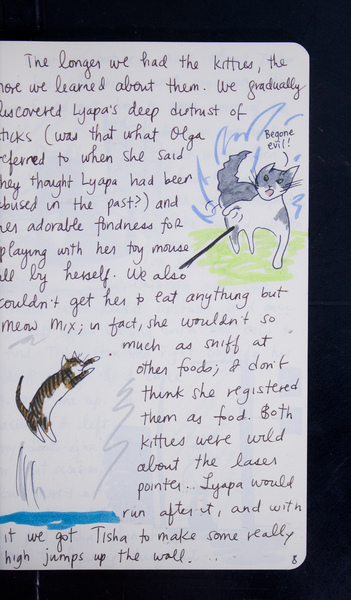 The longer we had the kitties, the
more we learned about them. We gradually
discovered Lyapa's deep distrust of
sticks (was that what Olga
referred to when she said
they thought Lyapa had been
abused in the past?) and
her adorable fondness for
playing with her toy mouse
all by herself. We also
couldn't get her to eat anything but
meow mix; in fact, she wouldn't so
much as sniff at
other foods; I don't
think she registered
them as food. Both
kitties were wild
about the laser
pointer.. Lyapa would
run after it, and with
it we got Tisha to make some really
high jumps up the wall. ...
Begone
evil!
8